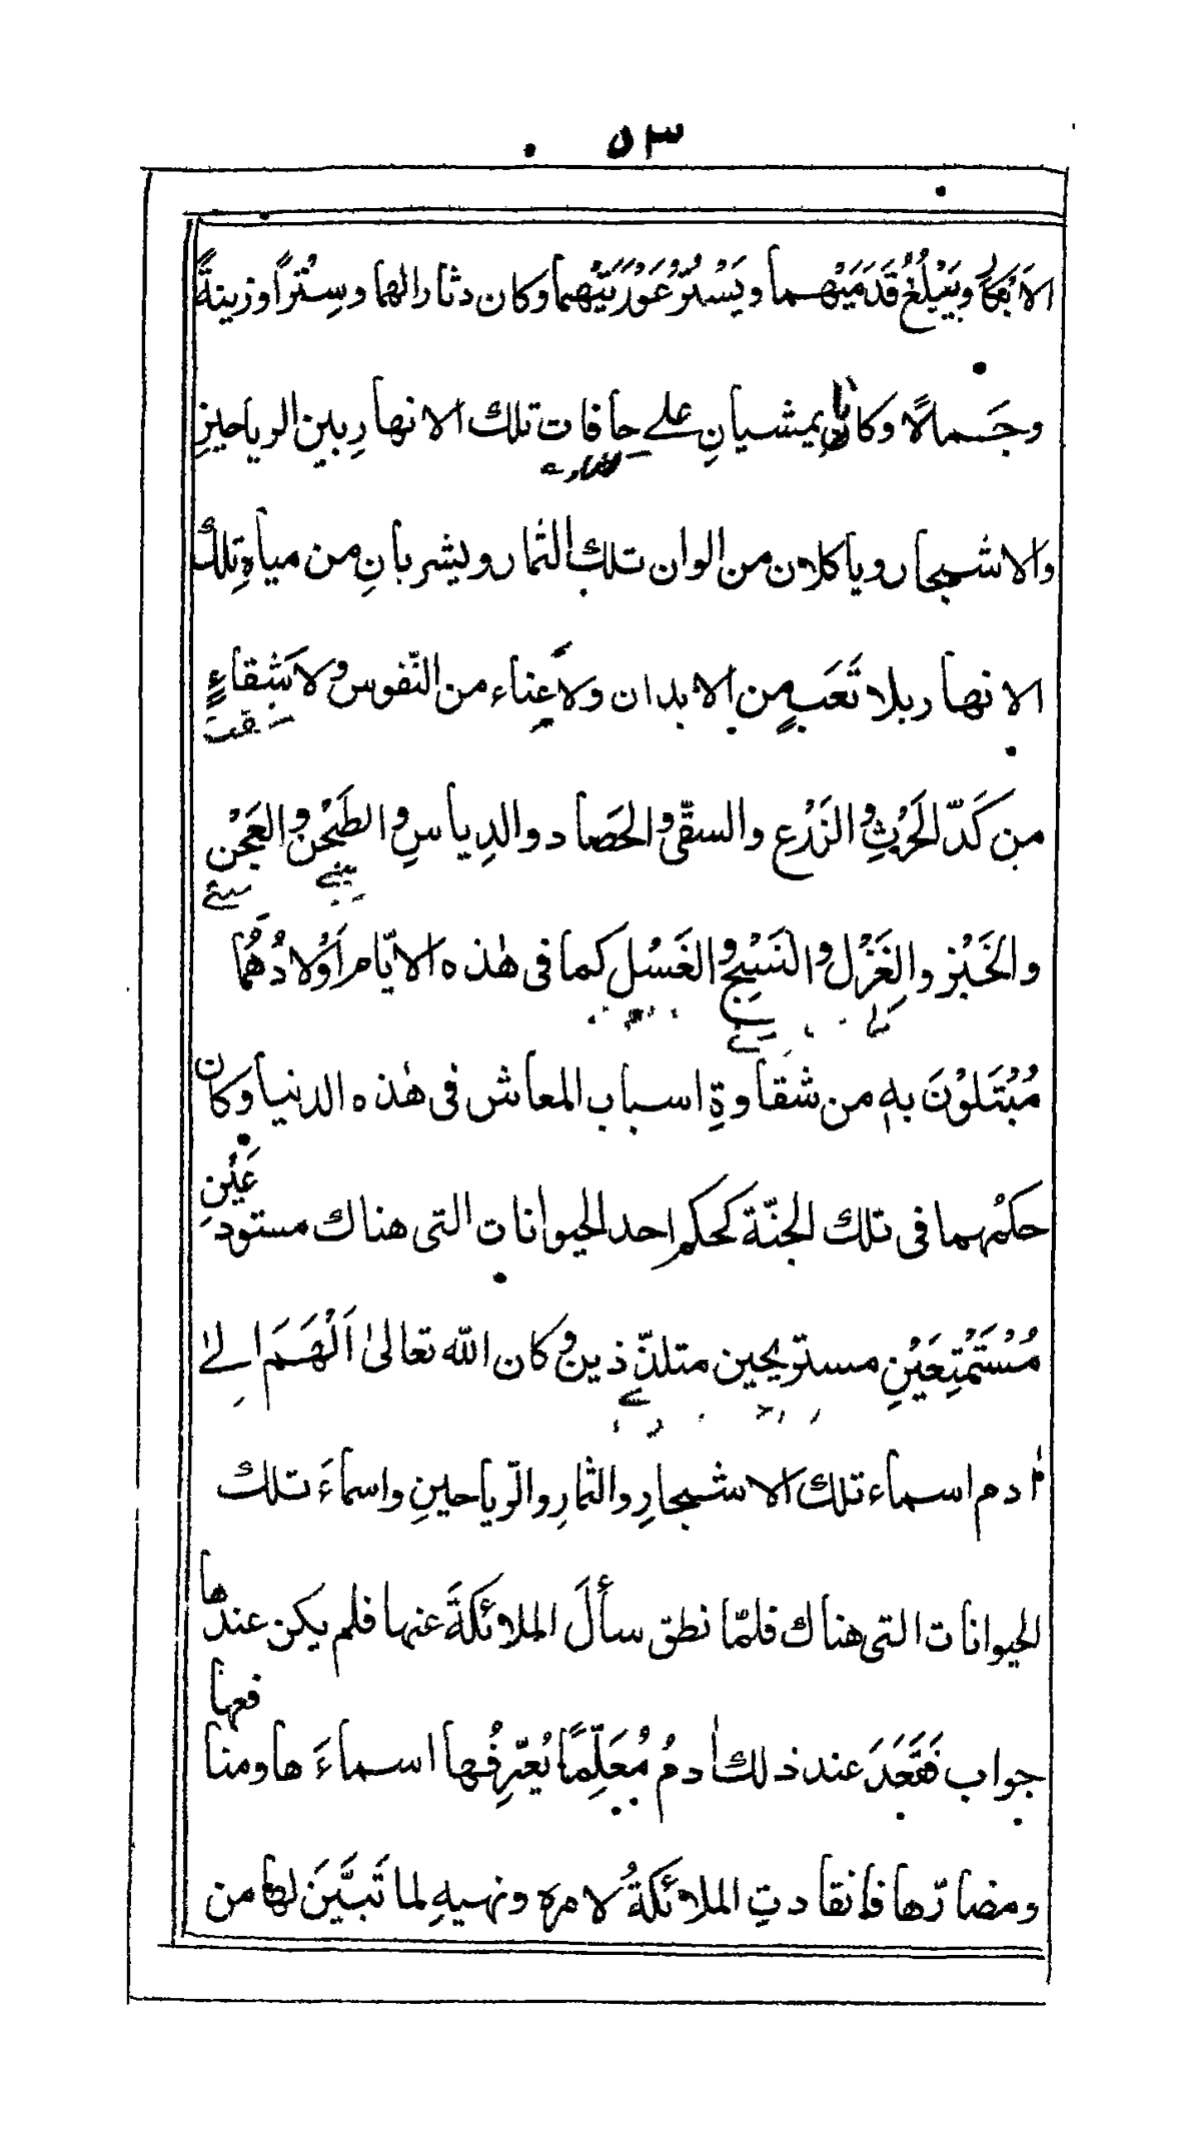 ٥٣
الابكار ويبلغ قَدَمَيْهما ويَسْتُرُ عَوْرَتَيْهما وكان دثارا لهما وسِتْراً وزينةً
وجَمالًا وكانا يمشيانِ على حافات تلك الانهارِ بين الرياحينِ
والاشجار وياكلان من الوان تلك الثمار ويشربانِ من مياهِ تلك
الانهار بلا تَعَبٍ من الابدان ولا عِناء من النّفوس ولا شَقاءٍ
من كَدّ الحَرْثِ والزَرْع والسقى والحَصاد والدِياسِ والطَحْن والعَجْن
والخَبْز والغَزْل والنَسْجِ والغَسْل كما فى هٰذه الايّام اَوْلادُهُما
مُبْتَلَوْنَ به من شقاوةِ اسباب المعاش فى هٰذه الدنيا وكان
حكمُهما فى تلك الجنّة كحكم احد الحيوانات التى هناك مستودَعَيْنِ
مُسْتَمْتِعَيْنِ مستريحين متلذّذين وكان الله تعالىٰ اَلْهَمَ الىٰ
اٰدم اسماء تلك الاشجارِ والثمارِ والرّياحينِ واسماءَ تلك
الحيوانات التى هناك فلمّا نطق سأَلَ الملائكةَ عنها فلم يكن عندها
جواب فَقَعَدَ عند ذلك اٰدمُ مُعَلِّمًا يُعَرِّفُها اسماءَها ومنافعها
ومضارّها فانقادتِ الملائكةُ لامره ونهيهِ لما تَبَيَّنَ لها من